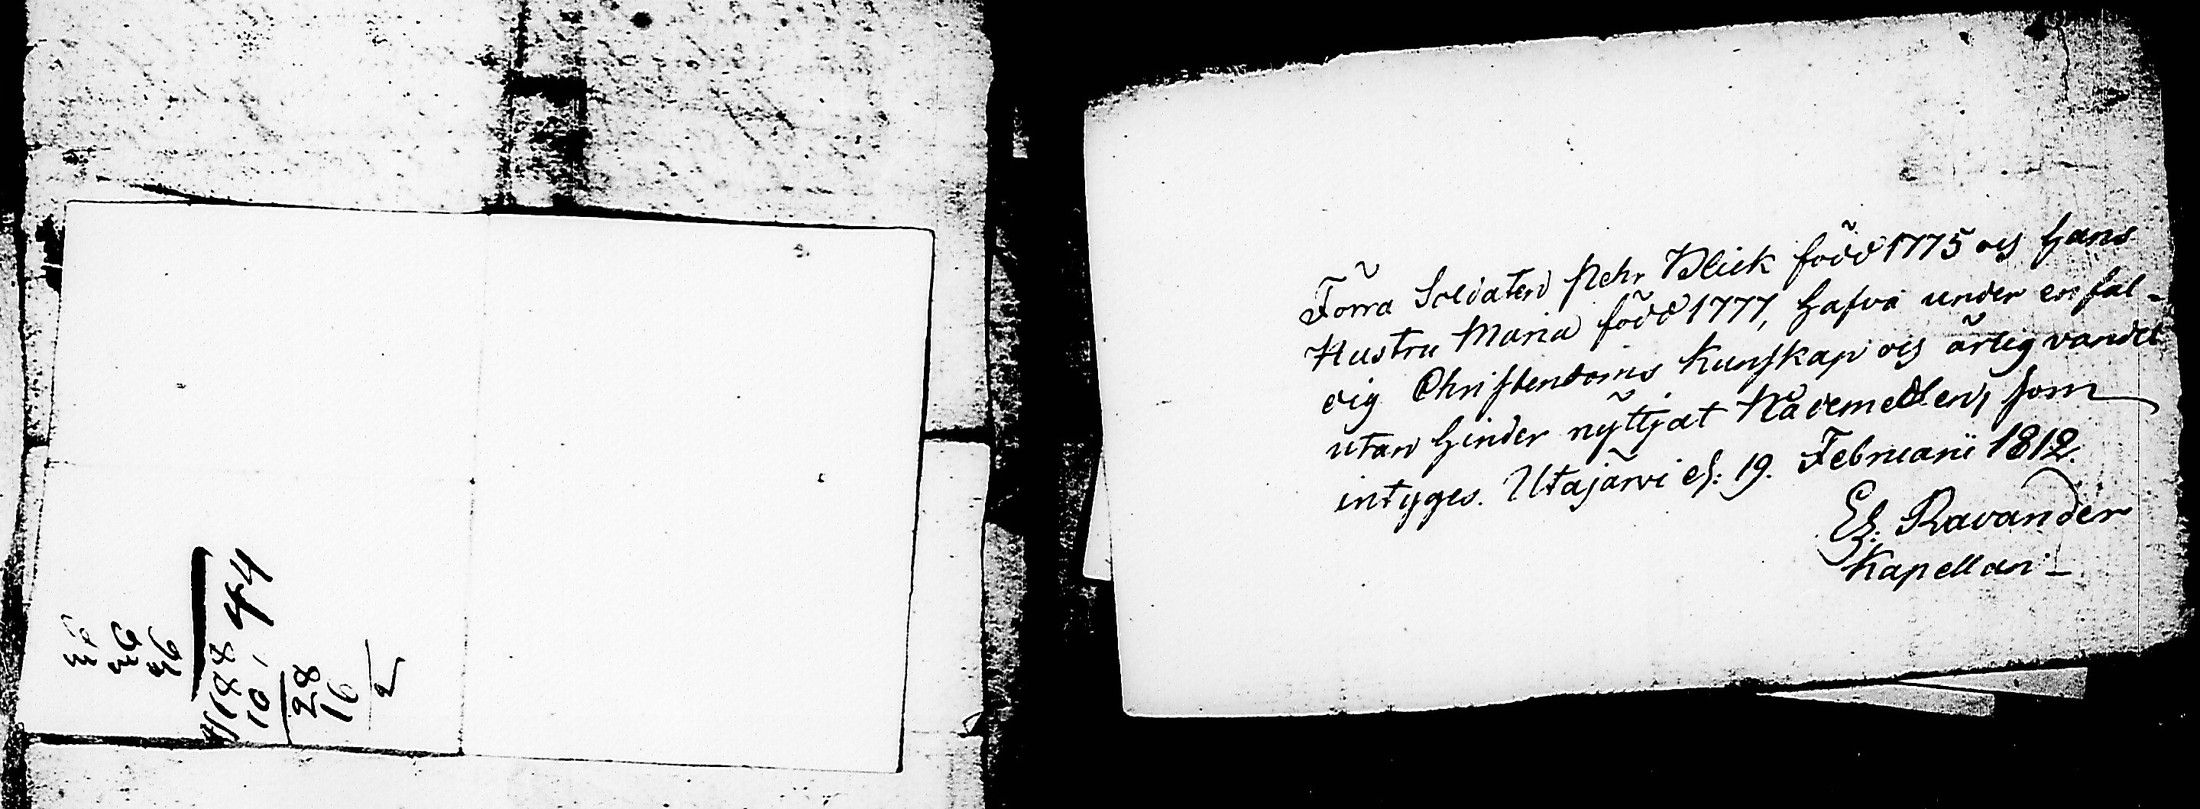 36
36
36
4/188 44
10,
28
16
2
Förra Soldaten Pehr Blick född 1775 och hans
Hustru Maria född 1777, hafva under enfal-
dig Christendoms kunskap och ärlig vandel
utan hinder nyttjat Nådemedlen, som
intyges. Utajärvi d: 19. Februarii 1812.
Ravander
Kapellan